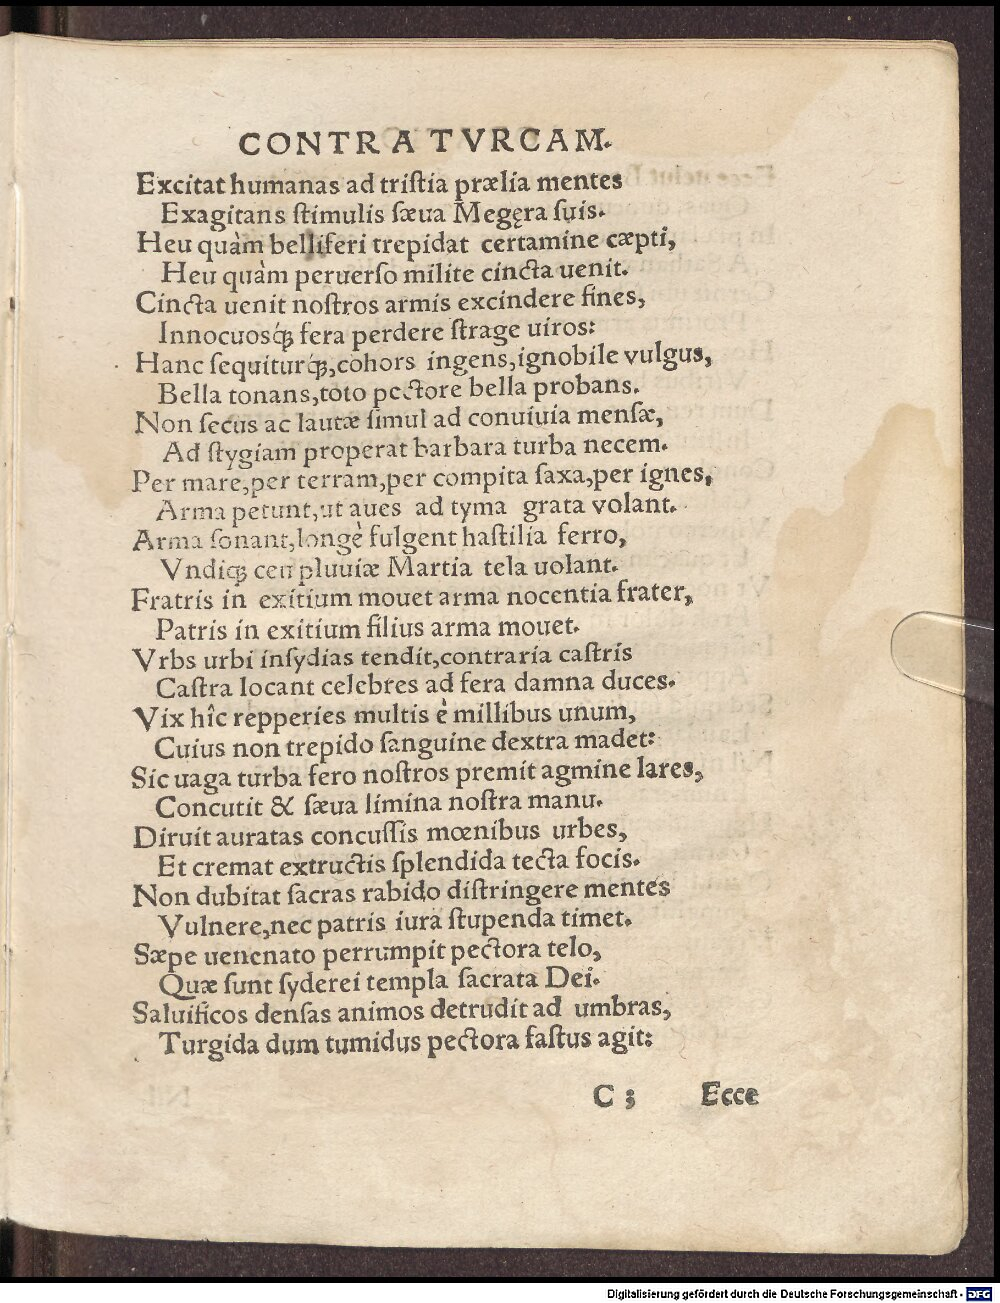 CONTRA TVRCAM.
Excitat humanas ad triſtia prælia mentes
Exagitans ſtimulis ſæua Megęra ſuis.
Heu quàm belliferi trepidat certamine cæpti,
Heu quàm peruerſo milite cincta uenit.
Cincta uenit noſtros armis excindere fines,
Innocuosq́ꝫ fera perdere ſtrage uiros:
Hanc ſequiturq́ꝫ, cohors ingens, ignobile vulgus,
Bella tonans, toto pectore bella probans.
Non ſecus ac lautæ ſimul ad conuiuia menſæ,
Ad ſtygiam properat barbara turba necem.
Per mare, per terram, per compita ſaxa, per ignes,
Arma petunt, ut aues ad tyma grata volant.
Arma ſonant, longè fulgent haſtilia ferro,
Vndiqꝫ ceu pluuiæ Martia tela uolant.
Fratris in exitium mouet arma nocentia frater,
Patris in exitium filius arma mouet.
Vrbs urbi inſydias tendit, contraria caſtris
Caſtra locant celebres ad fera damna duces.
Vix hîc repperies multis è millibus unum,
Cuius non trepido ſanguine dextra madet:
Sic uaga turba fero noſtros premit agmine lares,
Concutit & ſæua limina noſtra manu.
Diruit auratas concuſſis mœnibus urbes,
Et cremat extructis ſplendida tecta focis.
Non dubitat ſacras rabido diſtringere mentes
Vulnere, nec patris iura ſtupenda timet.
Sæpe uenenato perrumpit pectora telo,
Quæ ſunt ſyderei templa ſacrata Dei.
Saluificos denſas animos detrudit ad umbras,
Turgida dum tumidus pectora faſtus agit:
C 3 Ecce
Digitalisierung gefördert durch die Deutsche Forschungsgemeinschaft - DFG